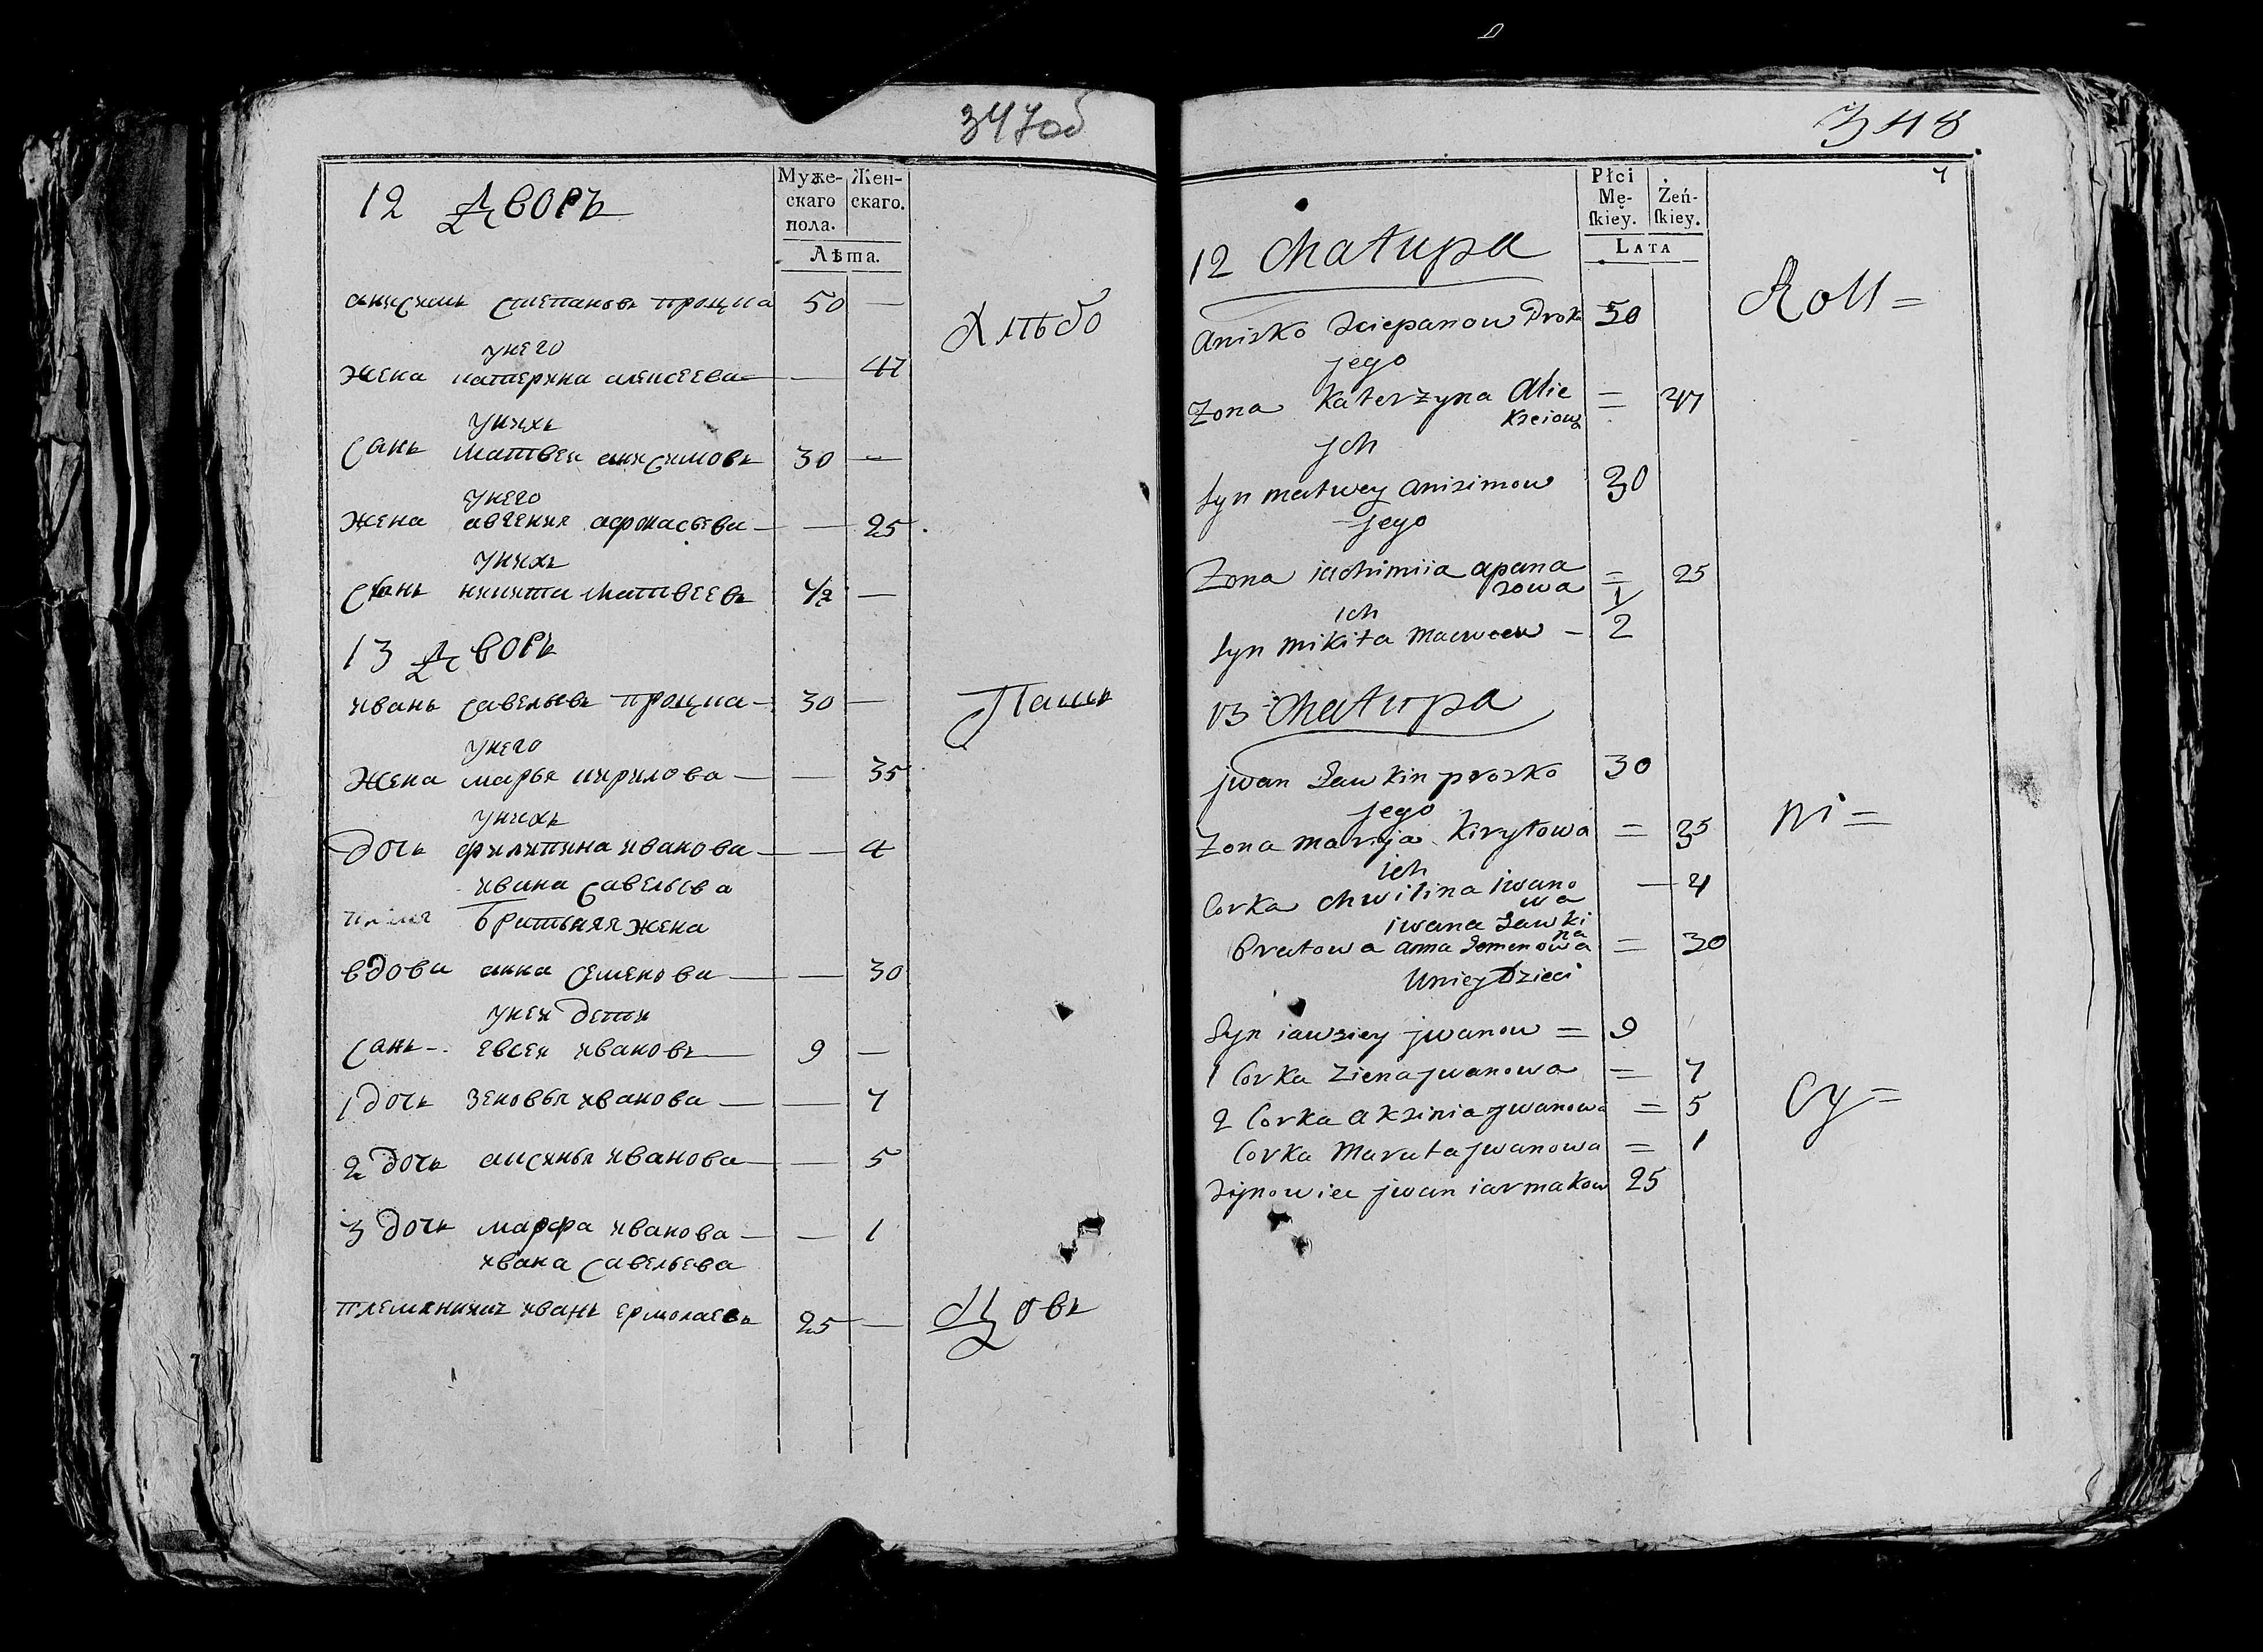 347об
12 дворъ
Муже-
скаго
пола.
Жен-
скаго.
Лѣта.
анисимъ степановъ проциа 50 —
унего
жена катерина алексеева — — 47
унихъ
сынъ матвеи анисимовъ 30 —
унего
жена авгения афонасьева — — 25
унихъ
сынъ никита матвеевъ 1/2 —
13 дворъ
иванъ савельевъ проциа — 30 —
унего
жена марья кирилова — — 35
унихъ
дочь филипина иванова — — 4
ивана савельева
братьняя жена
вдова анна семенова — — 30
унеи дети
сынъ — евсеи ивановъ — 9 —
1 дочь зеновья иванова — — 7
2 дочь аксинья иванова — — 5
3 дочь марфа иванова — — 1
ивана савельева
племянникъ иванъ ермолаевъ 25 —
Хлѣбо
Паши
цовъ
348
7
Płci
Mę-
ſkiey.
Żeń-
ſkiey.
LATA
12 Chałupa
Anisko Sciepanow Prok 50
jego
Zona Katerzyna Alie = 47
kseiowa
jch
Syn matwey anisimow 30
jego
Zona iachimiia apana = 25
sowa
ich
Syn mikita macweew — 1/2
13 Chałupa
jwan Sawkin prosko 30
jego
Zona maryja Kiryłowa = 35
ich
Corka chwilina iwano — 4
wa
iwana Sawki
na
Bratowa anna Semenowa = 30
Uniey Dzieci
Syn iawsiey jwanow = 9
1 Corka Ziena jwanowa = 7
2 Corka aksinia jwanowa = 5
Corka Maruta jwanowa = 1
Synowiec jwan iarmakow 25
Roll =
ni =
cy =